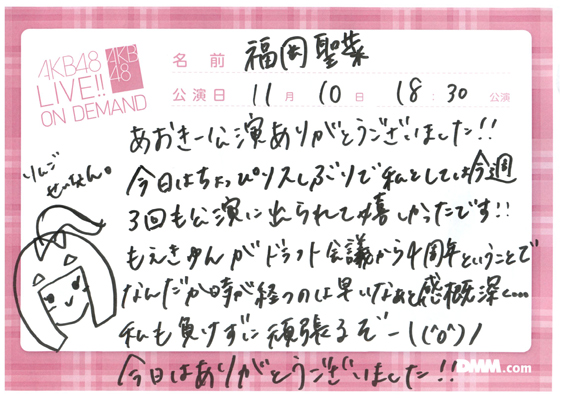 AKB48
LIVE!!
ON DEMAND
AKB
48
名前 福岡聖菜
公演日 11月10日 18:30公演
あおきー公演ありがとうございました!!
りんご
せいちゃん。
今日はちょっぴり久しぶりで私としては今週
3回も公演に出られて嬉しかったです!!
もえきゅんがドラフト会議から4周年ということで
なんだか時が経つのは早いなぁと感慨深く…
私も負けずに頑張るぞー\(^o^)/
今日はありがとうございました!!
DMM.com